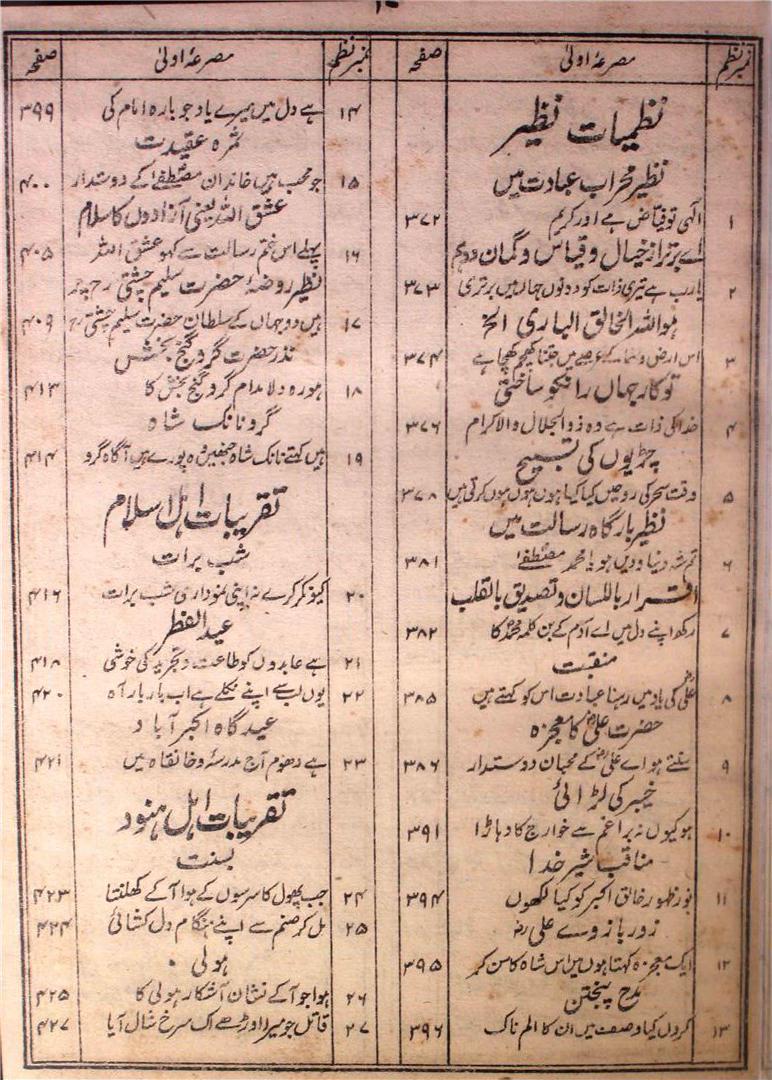 نمبر نظم مصرعۂ اولیٰ صفحہ
نظمیات نظیر
نظیر محراب عبادت میں
۱ الٰہی تو فیاض ہے اور کریم ۳۷۲
اے برتر از خیال و قیاس و گمان و وہم
۲ یارب ہے تیری ذات کو دونوں جہاں میں برتری ۳۷۳
ہواللہ الخالق الباری الخ
۳ اس ارض و سما کے عرصے میں جتنا کھچم کھچا ہے ۳۷۴
تو کار جہاں را نکو ساختی
۴ خدا کی ذات ہے وہ ذوالجلال والاکرام ۳۷۶
چڑیوں کی تسبیح
۵ وقت سحر کی رو میں کیا کیا ہوں ہوں ہوں ہوں کرتی ہیں ۳۷۸
نظیر بارگاہ رسالت میں
۶ تم شہ دنیا و دیں ہو یا محمد مصطفےٰ ۳۸۱
اقرار باللسان و تصدیق بالقلب
۷ رکھ اپنے دل میں اے آدم کے بن کلمہ محمدؐ کا ۳۸۲
منقبت
۸ علیؓ کی یاد میں رہنا عبادت اس کو کہتے ہیں ۳۸۵
حضرت علیؓ کا معجزہ
۹ سنتے ہو اے علیؓ کے محبان دوستدار ۳۸۶
خیبر کی لڑائی
۱۰ ہو کیوں نہ براعم سے خوارج کا دہاڑا ۳۹۱
مناقب شیر خدا
۱۱ نور ظہور خالق اکبر کو کیا لکھوں ۳۹۴
زور بازوے علی رض
۱۲ ایک معجزہ کہتا ہوں میں اس شاہ کا من کر ۳۹۵
مدح پنجتن
۱۳ کروں کیا وصف میں ان کا الم ناک ۳۹۶
نمبر نظم مصرعۂ اولیٰ صفحہ
۱۴ ہے دل میں میرے یاد جو بارہ امام کی ۳۹۹
ثمرہ عقیدت
۱۵ جو محب ہیں خاندان مصطفےٰ کے دوستدار ۴۰۰
عشق اللہ یعنی آزادوں کا سلام
۱۶ پہلے اس ختم رسالت سے کہو عشق اللہ ۴۰۵
نظیر روضۂ حضرت سلیم چشتی رح پر
۱۷ ہیں دو جہاں کے سلطان حضرت سلیم چشتی رح ۴۰۹
نذر حضرت گرو گنج بخش
۱۸ ہورہ دلا مدام گرو گنج بخش کا ۴۱۳
گرو نانک شاہ
۱۹ ہیں کہتے نانک شاہ جنھیں وہ پورے ہیں آگاہ گرو ۴۱۴
تقریبات اہل اسلام
شب برات
۲۰ کیونکر کرے نہ اپنی نموداری شب برات ۴۱۶
عید الفطر
۲۱ ہے عابدوں کو طاعت و تجرید کی خوشی ۴۱۸
۲۲ یوں لب سے اپنے نکلے ہے اب بار بار آہ ۴۲۰
عید گاہ اکبر آباد
۲۳ ہے دھوم آج مدرسہ و خانقاہ میں ۴۲۱
تقریبات اہل ہنود
بسنت
۲۴ جب پھول کا سرسوں کے ہوا آکے کھلنتا ۴۲۳
۲۵ مل کر صنم سے اپنے ہنگام دل کشائی ۴۲۴
ہولی
۲۶ ہوا جو آکے نشان آشکار ہولی کا ۴۲۵
۲۷ قاتل جو میرا اوڑھے اک سرخ شال آیا ۴۲۷